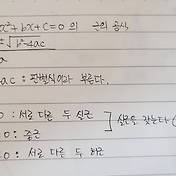 x²+bx+c=0 의 근의 공식
±√b²-4ac
a
ac : 판별식이라 부른다.
0 : 서로 다른 두 실근
0 : 중근 ] 실근을 갖는다 (
0 : 서로 다른 두 허근